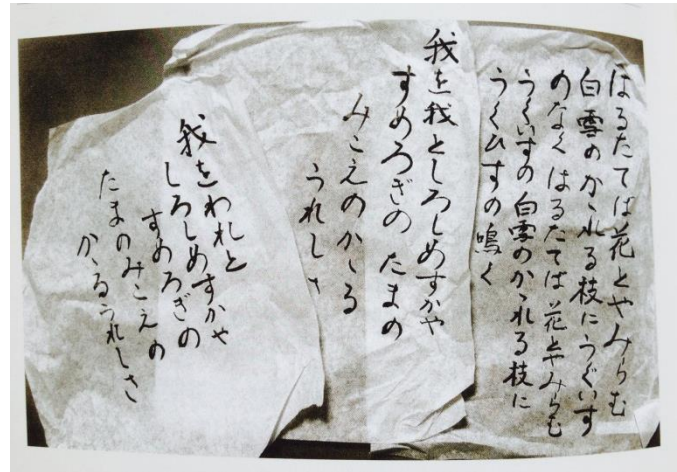 はるたては花とやみらむ
白雪のかゝれる枝にうぐいす
のなく はるたては花とやみらむ
うぐいすの白雪のかゝれる枝に
うくひすの鳴く
我を我としろしめすかや
すめろぎの たまの
みこえのかゝる
うれしさ
我をわれと
しろしめすかや
すめろぎの
たまのみこえの
かゝるうれしさ